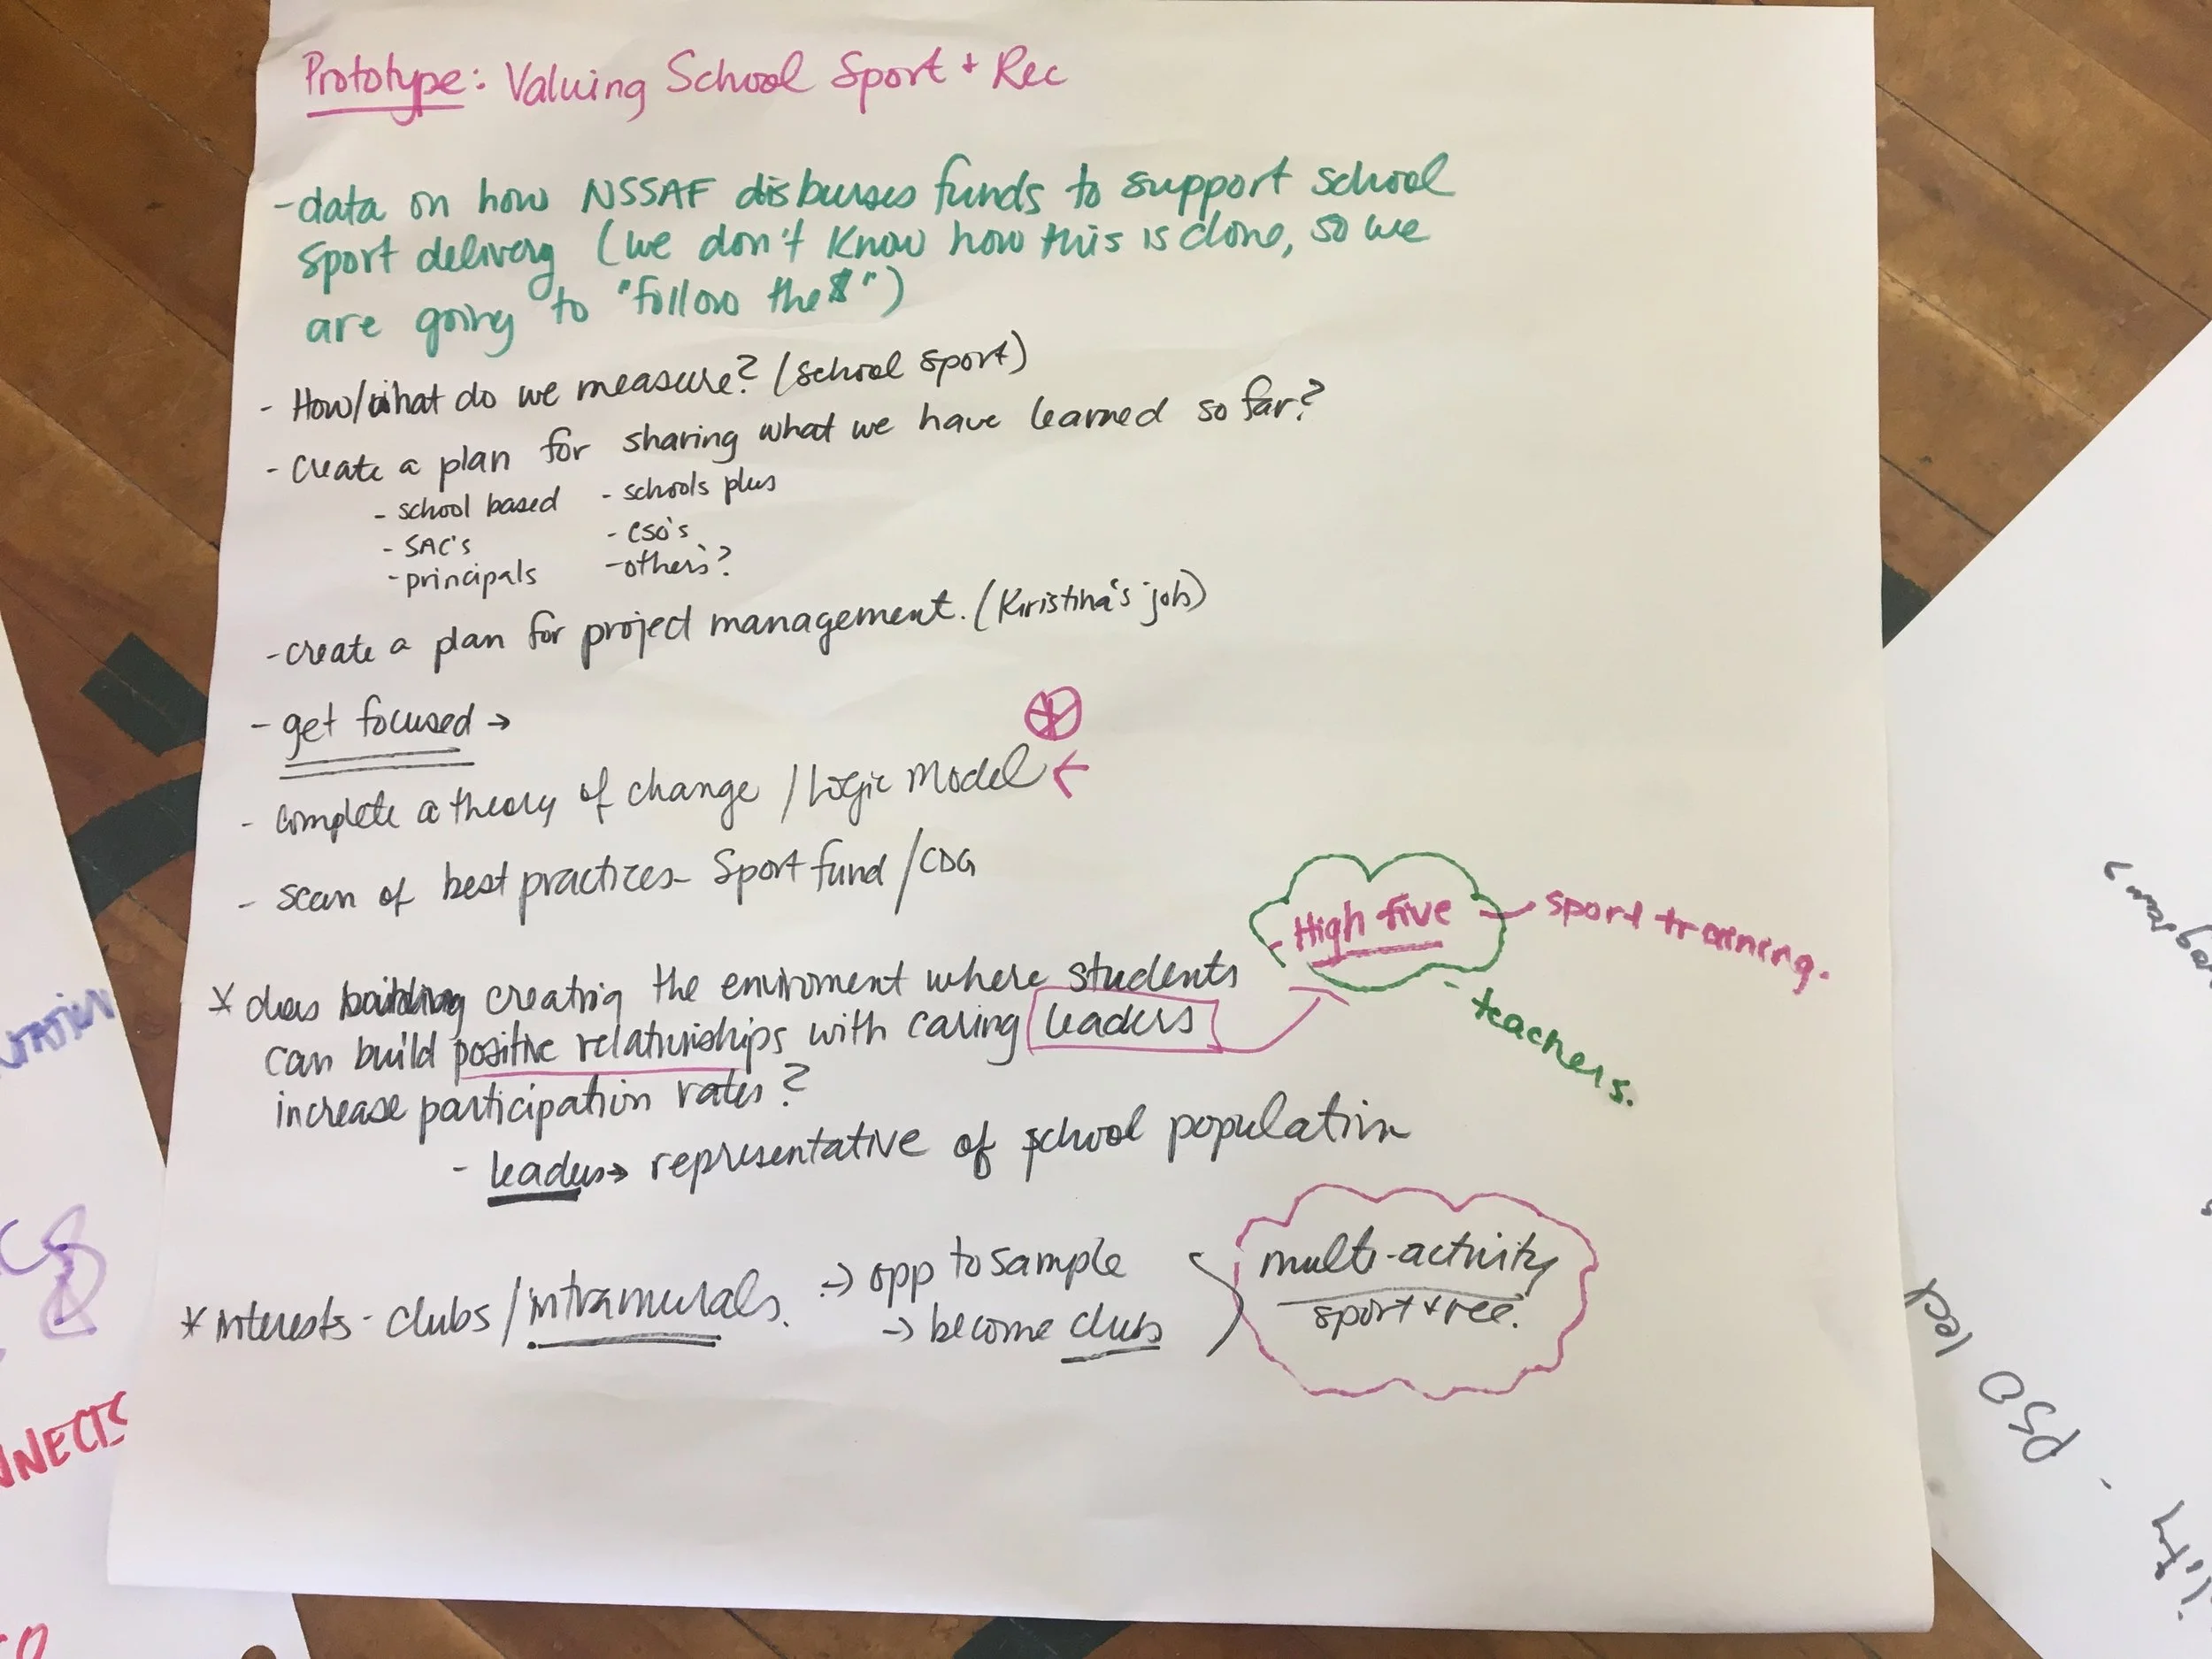 Prototype: Valuing School Sport + Rec
- data on how NSSAF disburses funds to support school
sport delivery (we don't know how this is done, so we
are going to "follow the $")
- How/what do we measure? (school sport)
- create a plan for sharing what we have learned so far?
- school based - schools plus
- SAC's - CSO's
- principals - others?
- create a plan for project management. (Kristina's job)
- get focused →
- complete a theory of change / Logic Model ←
- scan of best practices - Sport fund / CDG
- High five - sport training.
- teachers.
* does building creating the enviroment where students
can build positive relationships with caring leaders
increase participation rates?
- leaders → representative of school population
* interests - clubs / intramurals. → opp to sample
→ become clubs
multi-activity
sport + rec.
NNECTS
PSO led